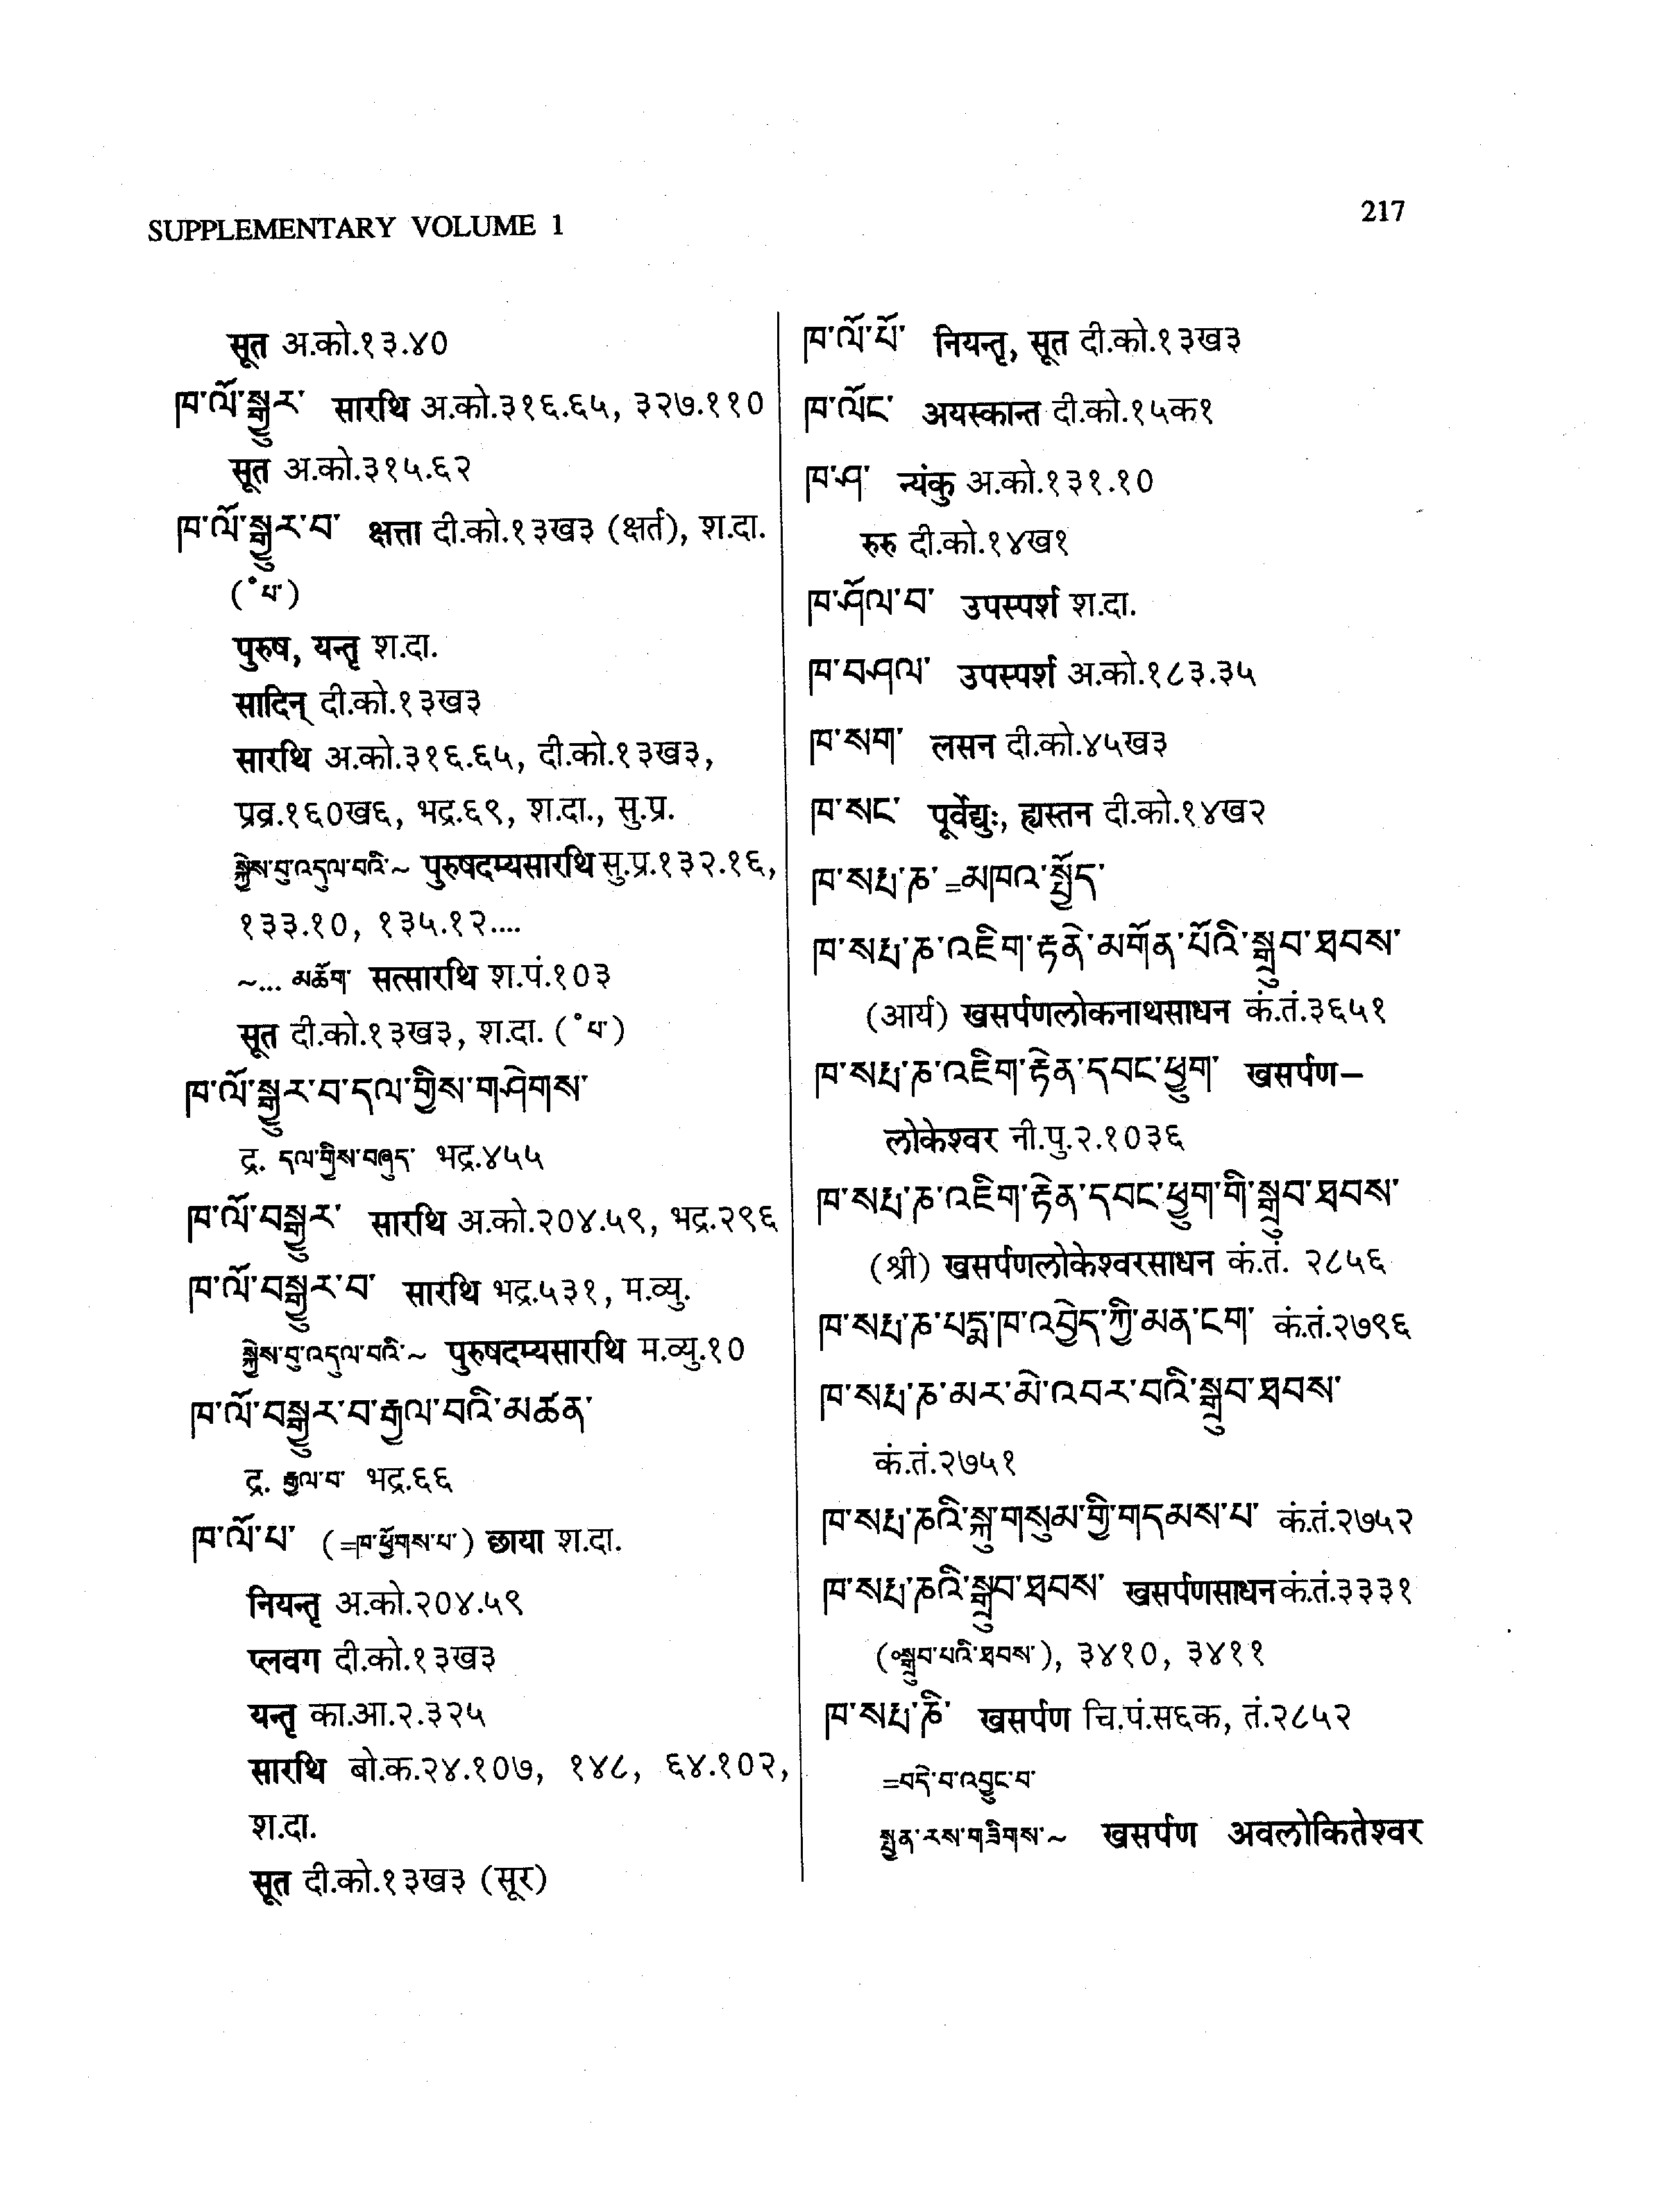 SUPPLEMENTARY VOLUME 1
217
सूत अ.को.१३.४०
ཁ་ལོ་སྒྱུར་ सारथि अ.को.३१६.६५, ३२७.११०
सूत अ.को.३१५.६२
ཁ་ལོ་སྒྱུར་བ་ क्षत्ता दी.को.१३ख३ (क्षर्त), श.दा.
(॰པ་)
पुरुष, यन्तृ श.दा.
सादिन् दी.को.१३ख३
सारथि अ.को.३१६.६५, दी.को.१३ख३,
प्रव्र.१६०ख६, भद्र.६९, श.दा., सु.प्र.
སྐྱེས་བུ་འདུལ་བའི་~ पुरुषदम्यसारथि सु.प्र.१३२.१६,
१३३.१०, १३५.१२....
~... མཆོག་ सत्सारथि श.पं.१०३
सूत दी.को.१३ख३, श.दा. (॰པ་)
ཁ་ལོ་སྒྱུར་བ་དལ་གྱིས་གཤེགས་
द्र. དལ་གྱིས་བཞུད་ भद्र.४५५
ཁ་ལོ་བསྒྱུར་ सारथि अ.को.२०४.५९, भद्र.२९६
ཁ་ལོ་བསྒྱུར་བ་ सारथि भद्र.५३१, म.व्यु.
སྐྱེས་བུ་འདུལ་བའི་~ पुरुषदम्यसारथि म.व्यु.१०
ཁ་ལོ་བསྒྱུར་བ་རྒྱལ་བའི་མཚན་
द्र. རྒྱལ་བ་ भद्र.६६
ཁ་ལོ་པ་ (=ཁ་ཕྱོགས་པ་) छाया श.दा.
नियन्तृ अ.को.२०४.५९
प्लवग दी.को.१३ख३
यन्तृ का.आ.२.३२५
सारथि बो.क.२४.१०७, १४८, ६४.१०२,
श.दा.
सूत दी.को.१३ख३ (सूर)
ཁ་ལོ་པོ་ नियन्तृ, सूत दी.को.१३ख३
ཁ་ལོང་ अयस्कान्त दी.को.१५क१
ཁ་ཤ་ न्यंकु अ.को.१३१.१०
रुरु दी.को.१४ख१
ཁ་ཤོལ་བ་ उपस्पर्श श.दा.
ཁ་བཤལ་ उपस्पर्श अ.को.१८३.३५
ཁ་སག་ लसन दी.को.४५ख३
ཁ་སང་ पूर्वेद्युः, ह्यस्तन दी.को.१४ख२
ཁ་སརྤ་ཎ་ =མཁའ་སྤྱོད་
ཁ་སརྤ་ཎ་འཇིག་རྟེན་མགོན་པོའི་སྒྲུབ་ཐབས་
(आर्य) खसर्पणलोकनाथसाधन कं.तं.३६५१
ཁ་སརྤ་ཎ་འཇིག་རྟེན་དབང་ཕྱུག་ खसर्पण–
लोकेश्वर नी.पु.२.१०३६
ཁ་སརྤ་ཎ་འཇིག་རྟེན་དབང་ཕྱུག་གི་སྒྲུབ་ཐབས་
(श्री) खसर्पणलोकेश्वरसाधन कं.तं. २८५६
ཁ་སརྤ་ཎ་པདྨ་ཁ་འབྱེད་ཀྱི་མན་ངག་ कं.तं.२७९६
ཁ་སརྤ་ཎ་མར་མེ་འབར་བའི་སྒྲུབ་ཐབས་
कं.तं.२७५१
ཁ་སརྤ་ཎའི་སྐུ་གསུམ་གྱི་གདམས་པ་ कं.तं.२७५२
ཁ་སརྤ་ཎའི་སྒྲུབ་ཐབས་ खसर्पणसाधन कं.तं.३३३१
(॰སྒྲུབ་པའི་ཐབས་), ३४१०, ३४११
ཁ་སརྤ་ཎི་ खसर्पण चि.पं.स६क, तं.२८५२
=བདེ་བ་འབྱུང་བ་
སྤྱན་རས་གཟིགས་~ खसर्पण अवलोकितेश्वर